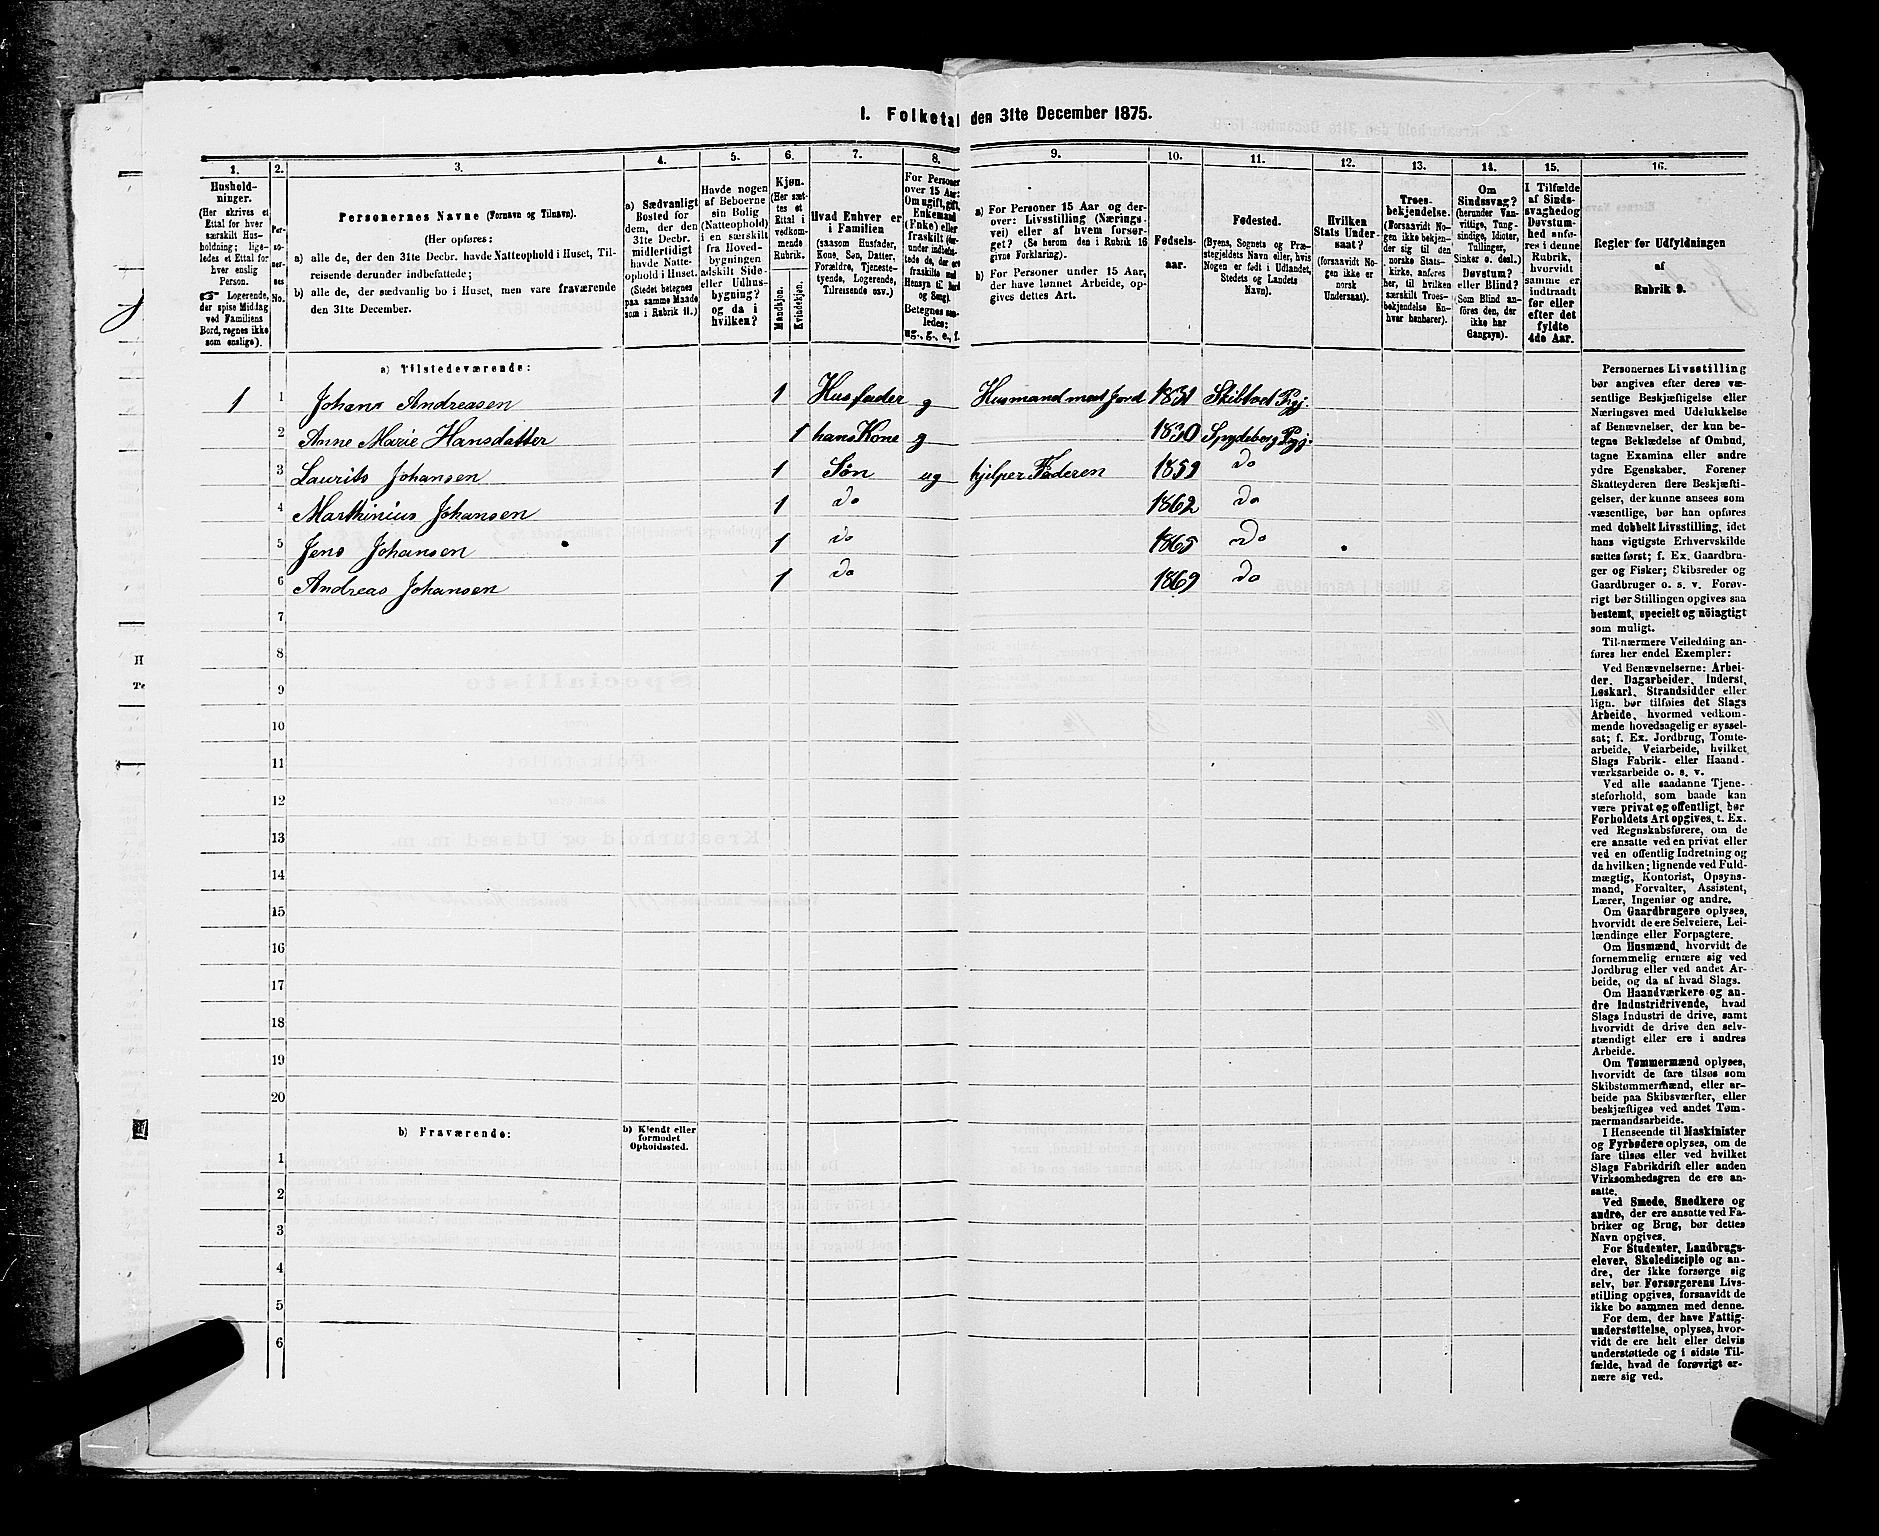 1. Folketal den 31te December 1875.
1.
2.
3.
4.
5.
6.
7.
8.
9.
10.
11.
12.
13.
14.
15.
16.
Hushold-
ninger.
(Her skrives et
Ettal for hver
særskilt Hus-
holdning; lige-
ledes et Ettal for
hver enslig
Person.
☞ Logerende,
der spise Middag
ved Familiens
Bord, regnes ikke
som enslige).
Per-
so-
ner-
nes
No.
Personernes Navne (Fornavn og Tilnavn).
(Her opføres:
a) alle de, der den 31te Decbr. havde Natteophold i Huset, Til-
reisende derunder indbefattede;
b) alle de, der sædvanlig bo i Huset, men vare fraværende
den 31te December.
a) Sædvanligt
Bosted for
dem, der den
31te Decbr.
midlertidigt
havde Natte-
ophold i Huset.
(Stedet betegnes
paa samme Maade
som i Rubrik 11.)
Havde nogen
af Beboerne
sin Bolig
(Natteophold)
i en særskilt
fra Hoved-
bygningen
adskilt Side-
eller Udhus-
bygning?
og da i
hvilken?
Kjøn.
(Her sæt-
tes et
Ettal i
vedkom-
mende
Rubrik.
Mandkjøn.
Kvindekjøn.
Hvad Enhver er
i Familien
(saasom Husfader,
Kone, Søn, Datter,
Forældre, Tjeneste-
tyende, Logerende,
Tilreisende osv.)
For Personer
over 15 Aar:
Om ugift, gift,
Enkemand
(Enke) eller
fraskilt
Betegnes saa-
ledes:
ug., g., e., f.
a) For Personer 15 Aar og der-
over: Livsstilling (Nærings-
vei) eller af hvem forsør-
get? (Se herom den i Rubrik 16
givne Forklaring).
b) For Personer under 15 Aar,
der have lønnet Arbeide, op-
gives dettes Art.
Fødsels-
aar.
Fødested.
(Byens, Sognets og Præ-
stegjeldets Navn eller, hvis
Nogen er født i Udlandet,
Stedets og Landets
Navn).
Hvilken
Stats Under-
saat?
(forsaavidt No-
gen ikke er
norsk
Undersaat).
Troes-
bekjendelse.
(Forsaavidt No-
gen ikke bekjen-
der sig til den
norske Stats-
kirke, anføres
her, til hvilken
særskilt Troes-
bekjendelse En-
hver henhører).
Om
Sindssvag?
(herunder Van-
vittige, Tung-
sindige, Idioter,
Tullinger,
Sinker o. desl.)
Døvstum?
eller Blind?
(Som Blind an-
føres den, der
ikke har
Gangsyn).
I Tilfælde
af Sinds-
svaghed og
Døvstum-
hed anfø-
res i denne
Rubrik,
hvorvidt
samme er
indtraadt
før eller
efter det
fyldte
4de Aar.
Regler for Udfyldningen
af
Rubrik 9.
a) Tilstedeværende:
1 1 Johans Andreasen 1 Husfader g Husmand med Jord 1831 Skibtvet Prgj.
2 Anne Marie Hansdatter 1 hans Kone g 1830 Spydeberg Prgj.
3 Laurits Johansen 1 Søn ug hjelper Faderen 1859 Do
4 Marthinius Johansen 1 Do 1862 Do
5 Jens Johansen 1 Do 1865 Do
6 Andreas Johansen 1 Do 1869 Do
7
8
9
10
11
12
13
14
15
16
17
18
19
20
b) Fraværende:
b) Kjendt eller
formodet
Opholdssted.
1
2
3
4
5
6
Personernes Livsstilling
bør angives efter deres væ-
sentlige Beskjæftigelse eller
Næringsvei med Udelukkelse
af Benævnelser, der kun be-
tegne Beklædelse af Ombud,
tagne Examina eller andre
ydre Egenskaber. Forener
Skatteyderen flere Beskjæfti-
gelser, der kunne ansees som
væsentlige, bør han opføres
med dobbelt Livsstilling, idet
hans vigtigste Erhvervskilde
sættes først; f. Ex. Gaardbru-
ger og Fisker; Skibsreder og
Gaardbruger o. s. v. Forøv-
rigt bør Stillingen opgives saa
bestemt, specielt og nöiagtigt
som muligt.
Til nærmere Veiledning an-
føres her endel Exempler:
Ved Benævnelserne: Arbei-
der, Dagarbeider, Inderst,
Løskarl, Strandsidder eller
lign. bør tilføies det Slags
Arbeide, hvormed vedkom-
mende hovedsagelig er syssel-
sat; f. Ex. Jordbrug, Tomte-
arbeide, Veiarbeide, hvilket
Slags Fabrik- eller Haand-
værksarbeide o. s. v.
Ved alle saadanne Tjene-
steforhold, som baade kan
være privat og offentligt, bør
Forholdets Art opgives, t. Ex.
ved Regnskabsførere, om de
ere ansatte ved en privat eller
ved en offentlig Indretning og
da hvilken; lignende ved Fuld-
mægtig, Kontorist, Opsyns-
mand, Forvalter, Assistent,
Lærer, Ingeniør og andre.
Om Gaardbrugere oplyses,
hvorvidt de ere Selveiere, Lei-
lændinge eller Forpagtere.
Om Husmænd, hvorvidt de
fornemmelig ernære sig ved
Jordbrug eller ved andet Ar-
beide, og da af hvad Slags.
Om Haandværkere og an-
dre Industridrivende, hvad
Slags Industri de drive, samt
hvorvidt de drive den selv-
stændigt eller ere i andres
Arbeide.
Om Tømmermænd oplyses,
hvorvidt de fare tilsøs som
Skibstømmermænd, eller ar-
beide paa Skibsværfter, eller
beskjæftiges ved andet Tøm-
mermandsarbeide.
I Henseende til Maskinister
og Fyrbødere oplyses, om de
fare tilsøs eller ved hvilket
Slags Fabrikdrift eller anden
Virksomhedsgren de ere an-
satte.
Ved Smede, Snedkere og
andre, der ere ansatte ved Fa-
briker og Brug, bør dettes
Navn opgives.
For Studenter, Landbrugs-
elever, Skoledisciple og an-
dre, der ikke forsørge sig
selv, bør Forsørgerens Livs-
stilling opgives, forsaavidt de
ikke bo sammen med denne.
For dem, der have Fattig-
understøttelse, oplyses, hvor-
vidt de ere helt eller delvis
understøttede og i sidste Til-
fælde, hvad de forøvrigt er-
nære sig ved.